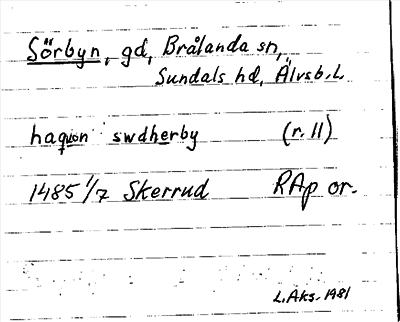 Sörbyn, gd, Brålanda sn,
Sundals hd, Älvsb. L
haquon swdherby (r. 11)
1485 1/7 Skerrud RAp or.
L. Aks. 1981